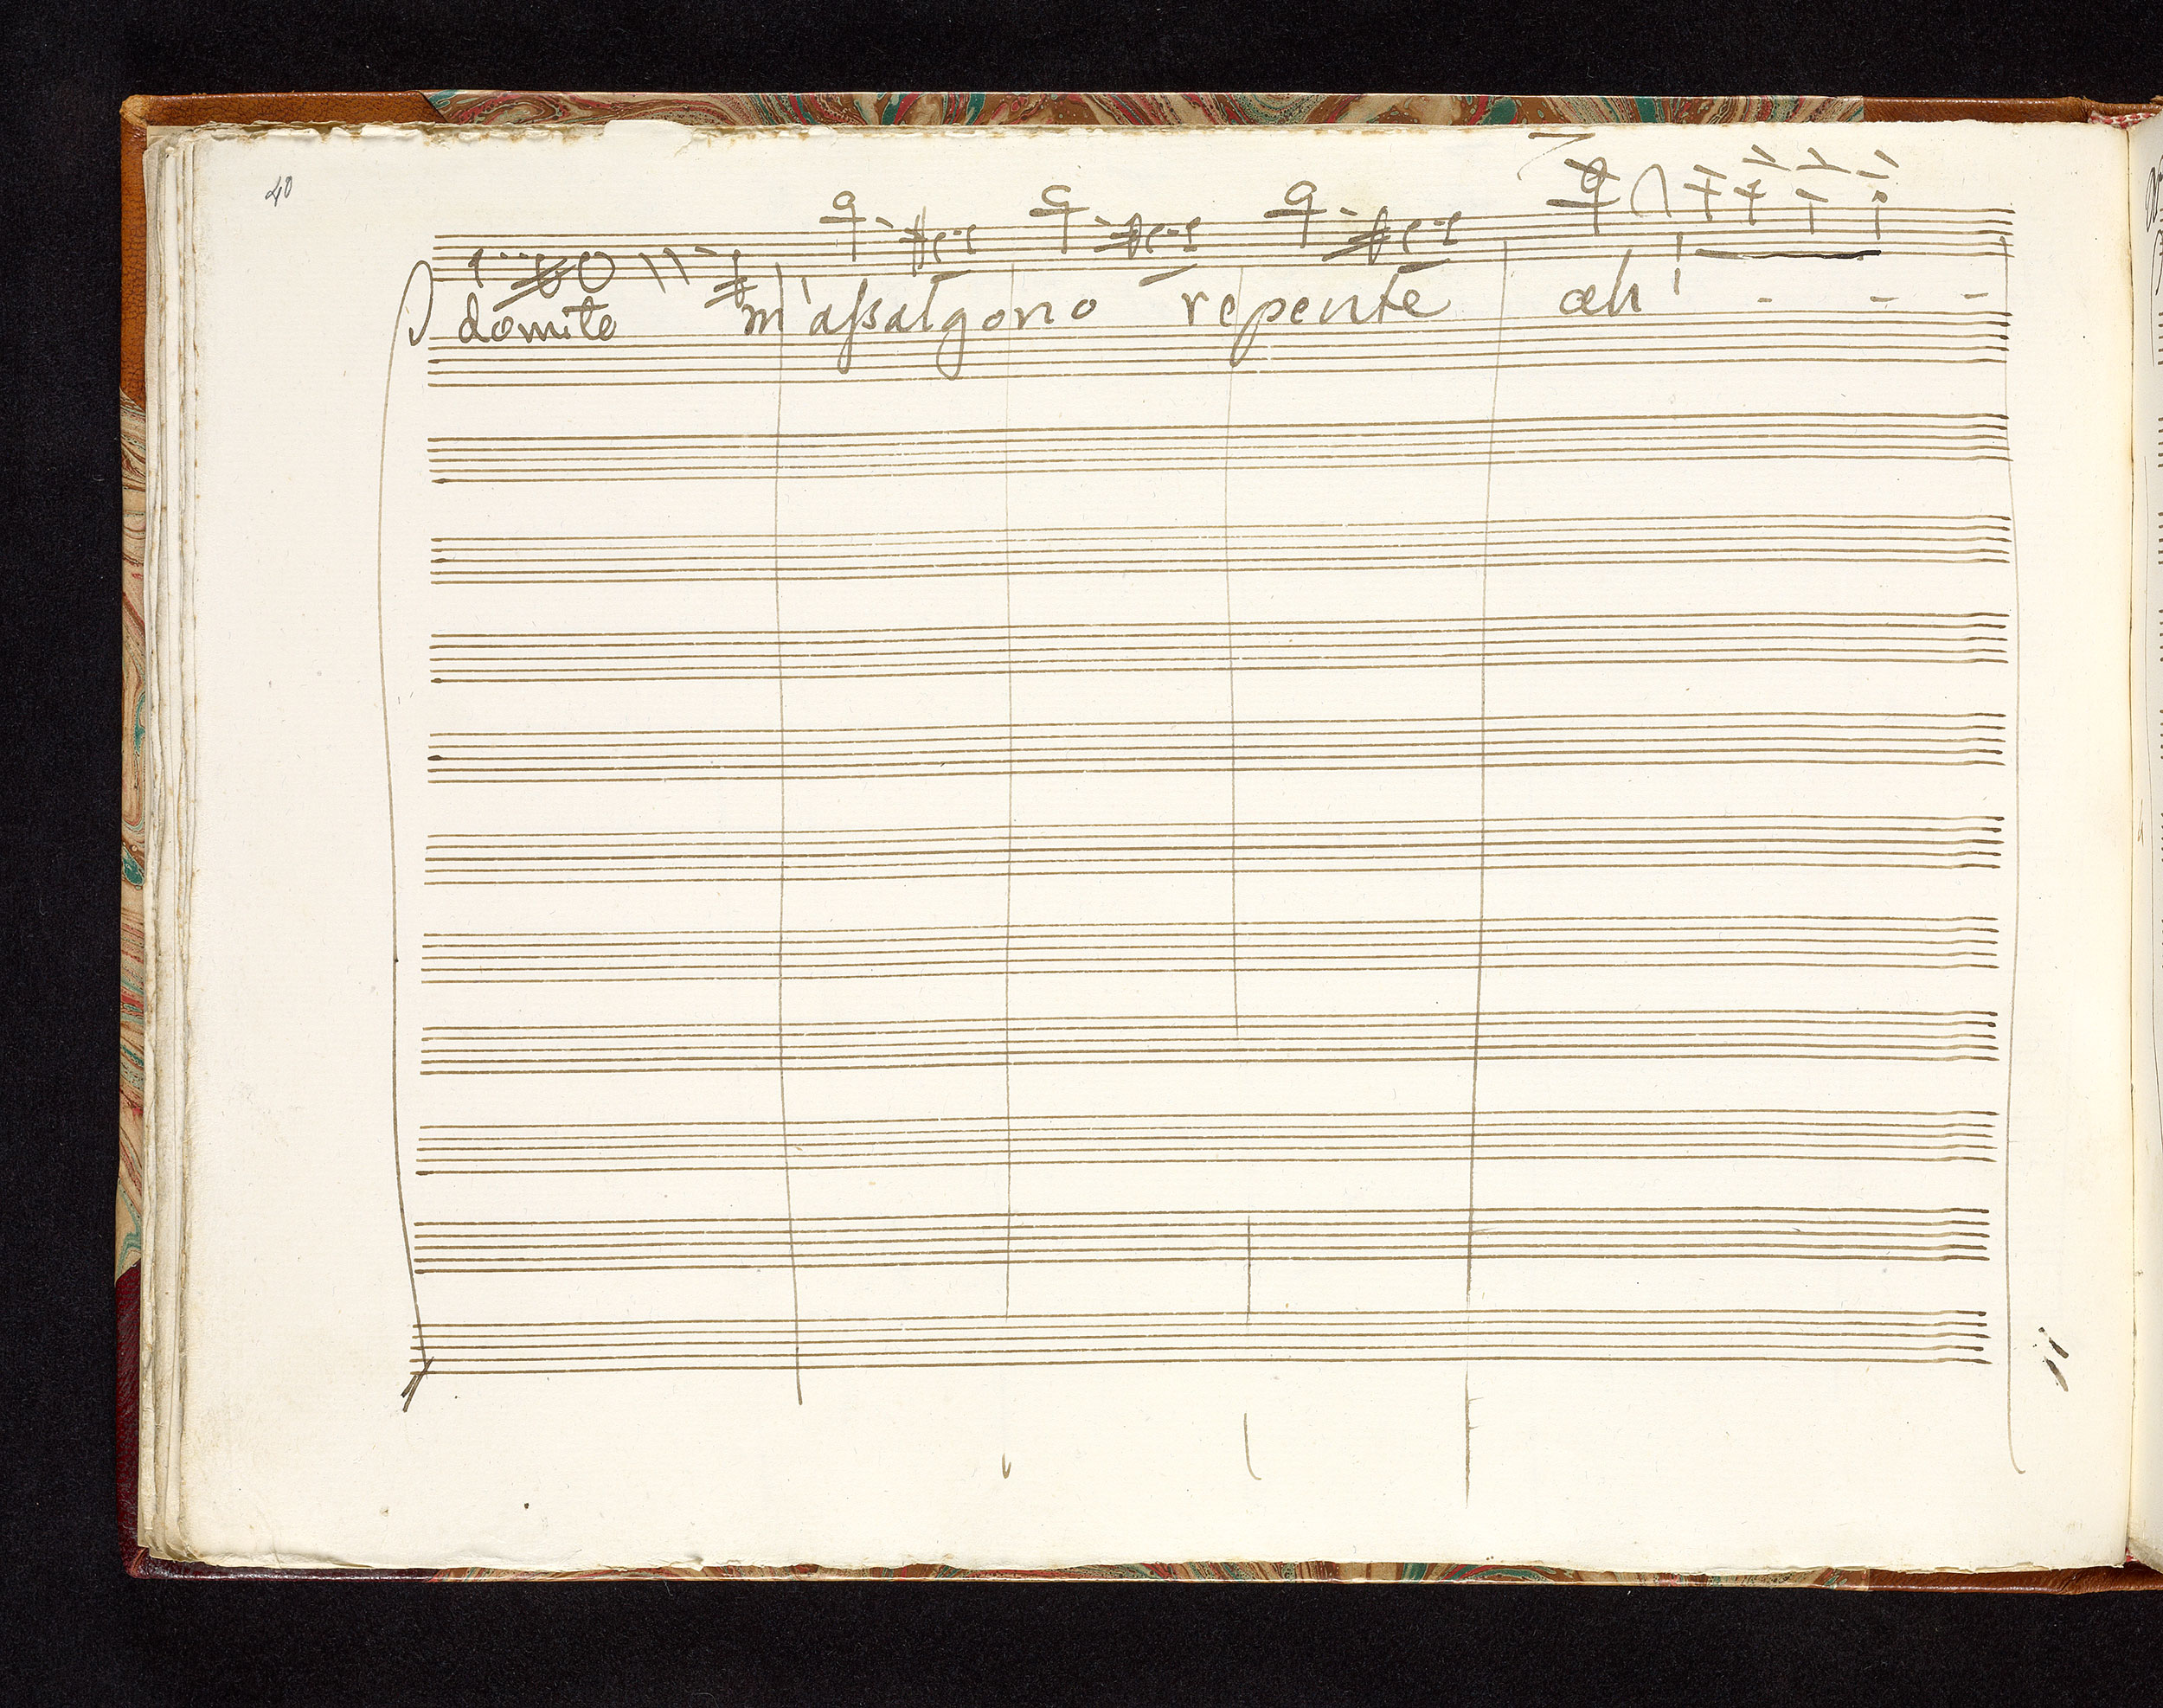 40
domite m'aſsalgono repente ah! - - -